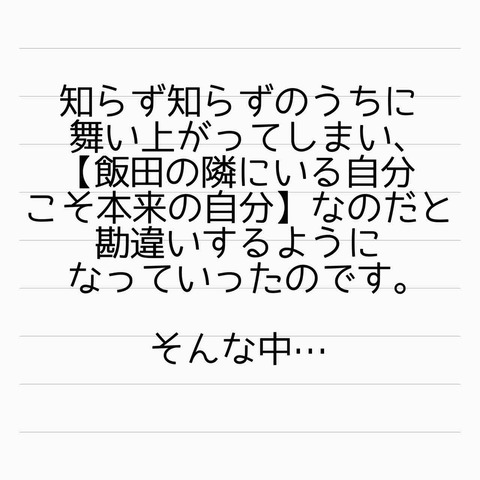 知らず知らずのうちに
舞い上がってしまい、
【飯田の隣にいる自分
こそ本来の自分】なのだと
勘違いするように
なっていったのです。
そんな中…